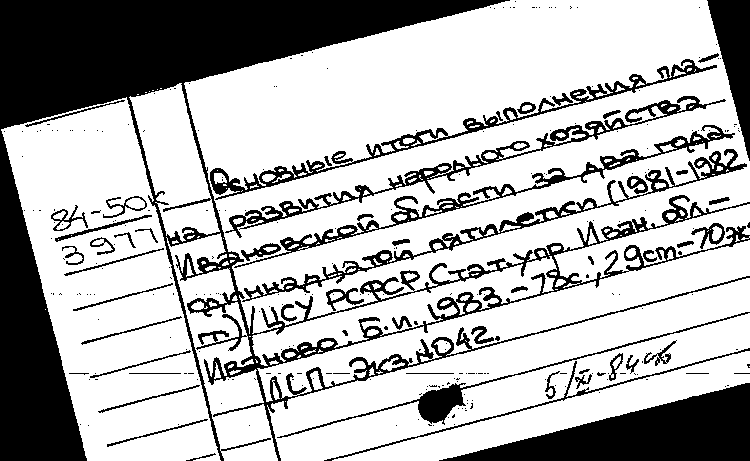 Основные итоги выполнения пла-
на развития народного хозяйства
Ивановской области за два года
одиннадцатой пятилетки (1981-1982
гг.)/ЦСУ РСФСР, Стат.упр. Иван. обл.-
Иваново: Б.и., 1983.-78с.; 29см.-70эк
ДСП. Экз.№042.
84-50К
3977
5/XI-84